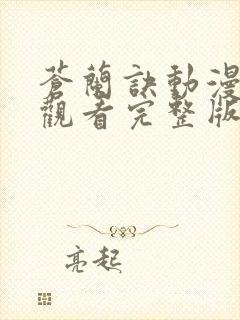 蒼蘭訣動漫
觀看完整版
亮起